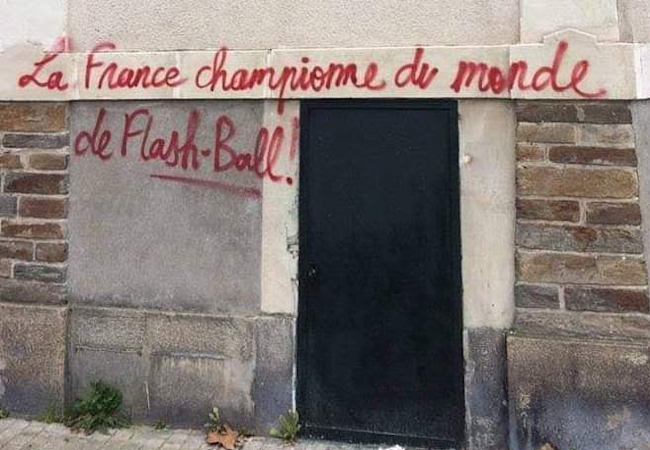 La France championne du monde
de Flash-Ball!